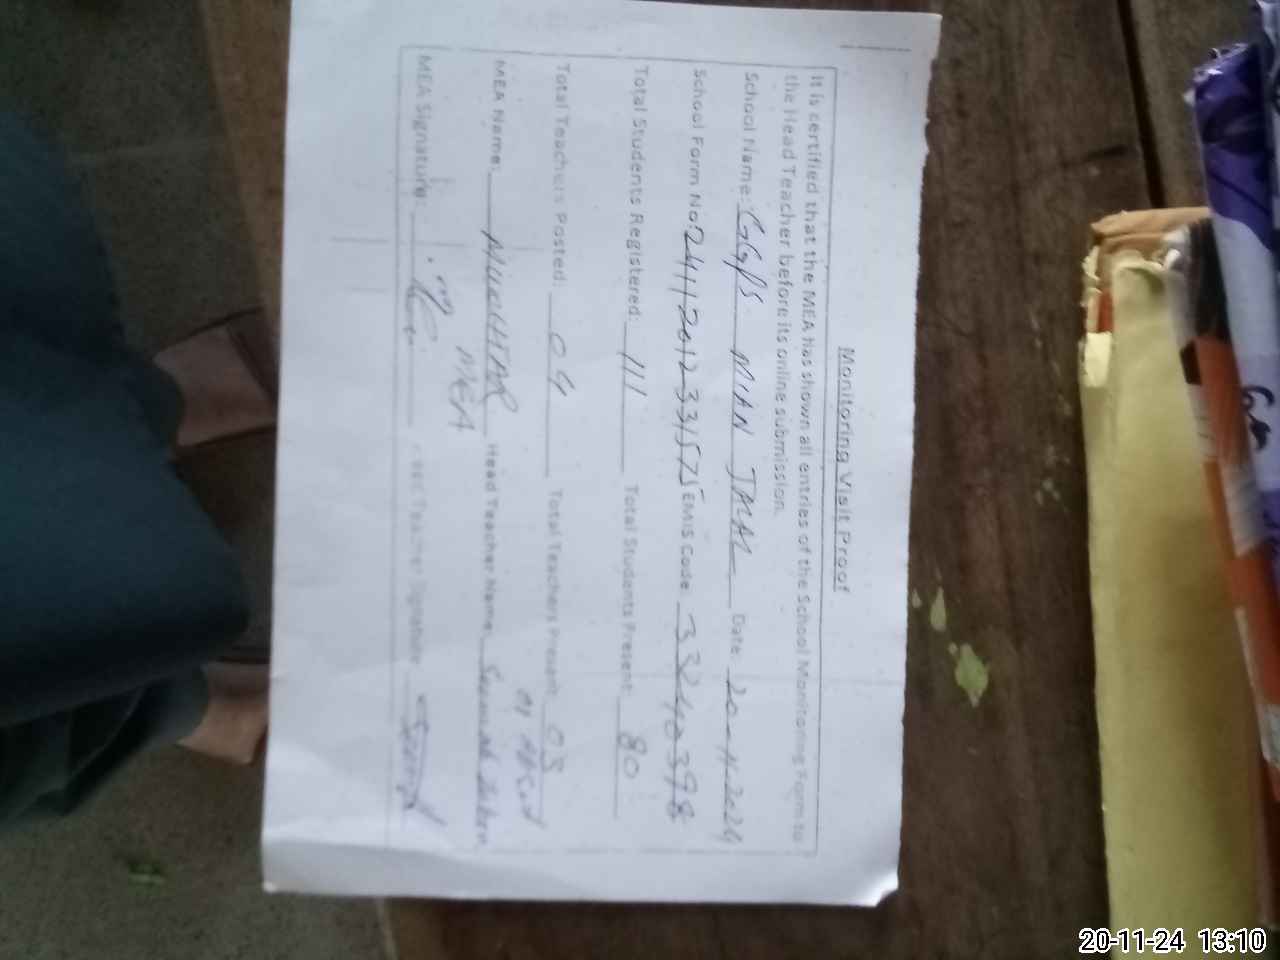 Monitoring Visit Proof
It is certified that the MEA has shown all entries of the School Monitoring Form to
the Head Teacher before its online submission.
School Name: GGPS MIAN JMAL Date: 20-11-2024
School Form No: 24112012331575 EMIS Code 33240398
Total Students Registered: 111 Total Students Present: 80
Total Teachers Posted: 04 Total Teachers Present 03
MEA Name: MUKHTAR Head Teacher Name
MEA
MEA Signature: Head Teacher Signature
20-11-24 13:10